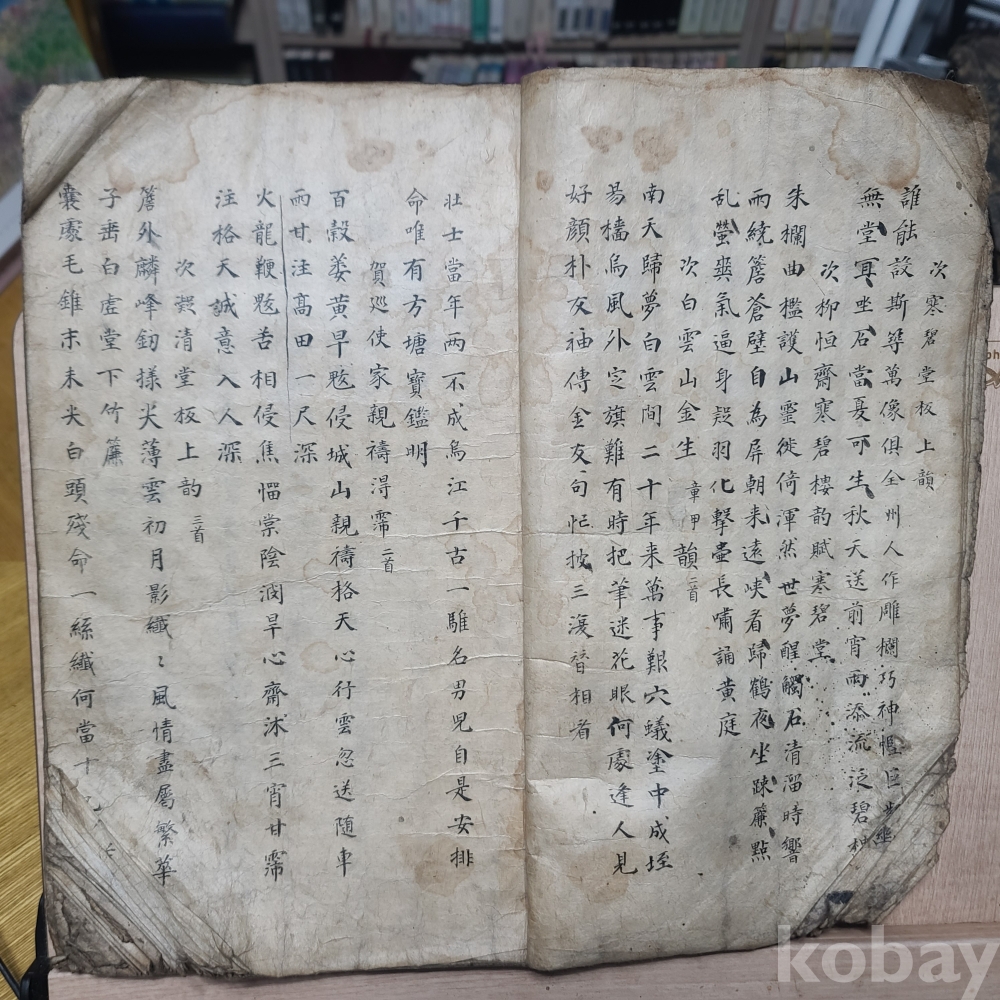 次寒碧堂板上韻
誰能設斯筭萬像俱全州人作雕欄巧神慳巨
無堂冥坐石當憂可生秋天送前宵雨添流泛碧
次柳恒齋寒碧樓韵賦寒碧堂
朱欄曲檻護山靈徙倚渾然世夢醒觸石清溜時響
雨繞簷蒼壁自為屏朝来遠峽看歸鶴夜坐踈簾點
乱螢爽氣逼身疑羽化擊壷長嘯誦黄庭
次白雲山金生章甲韻二首
南天歸夢白雲間二十年来萬事艱穴蟻塗中成垤
易檣烏風外定旗難有時把筆迷花眼何處逢人見
好顔朴友袖傳金友句忙披三復替相看
壮士當年兩不成烏江千古一騅名男児自是安排
命唯有方塘寳鑑明
賀廵使家親禱淂霈二首
百糓萎黄旱魃侵城山親禱格天心行雲忽送随車
雨甘注髙田一尺深
火龍鞭魃苦相侵焦悩棠陰润旱心齋沐三宵甘霈
注格天誠意入人深
次凝清堂板上韵三首
簷外麟峰釰様尖薄雲初月影纖〻風情盡屬繁華
子垂白虛堂下竹簾
囊處毛錐末未尖白頭殘命一絲纖何當十